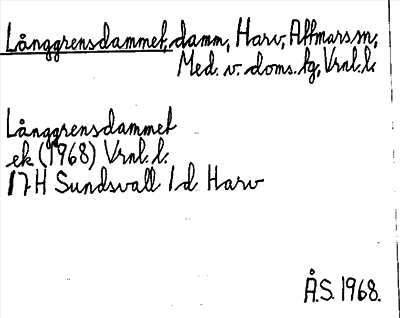 Långgrensdammet, damm, Harv, Attmars sn,
Med. v. doms. tg, Vrnl. l.
Långgrensdammet
ek (1968) Vrnl. l.
17H Sundsvall 1d Harv
Å.S. 1968.